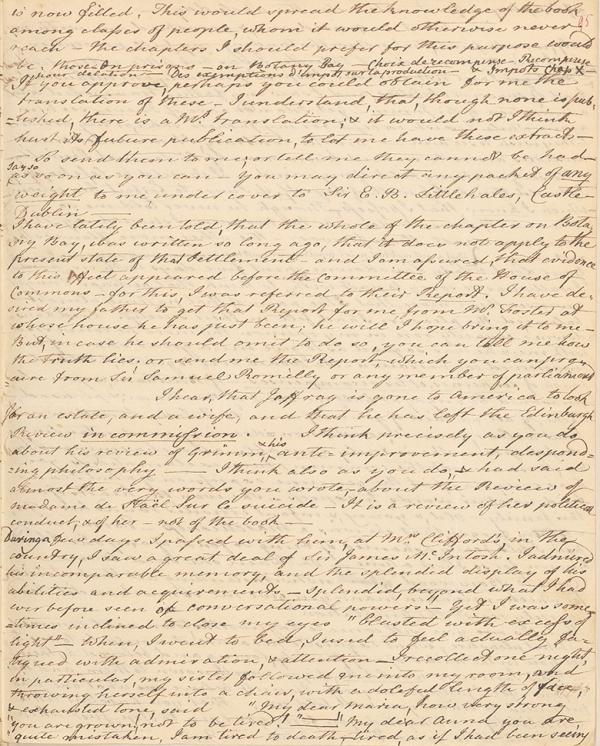 is now filled. This would spread the knowledge of the book
95
among classes of people, whom it would otherwise never
reach – the chapters I should prefer for this purpose would
be, those on prisons – on Botany Bay – Choix de recompense – Recompense
pour delation – Des exemptions d'impot sur la production – & Impots Chap X –
If you approve, perhaps you could obtain for me the
translation of these – I understand, that, though none is pub-
-lished, there is a MS translation; & it would not I think
hurt its future publication, to let me have these extracts –
So send them to me; or tell me they cannot be had –
as soon as you can – you may direct any packet of any
weight to me, under cover to Sir E. B. Littlehales, Castle
Dublin –
I have lately been told, that the whole of the chapter on Bota-
ny Bay, was written so long ago, that it does not apply to the
present state of that Settlement – and I am assured, that evidence
to this effect appeared before the Committee of the House of
Commons – for this, I was referred to their Report. I have de-
sired my father to get that Report for me from Mr. Foster at
whose house he has just been; he will I hope bring it to me –
But, in case he should omit to do so, you can tell me how
the truth lies, or send me the Report, which you can pro-
cure from Sir Samuel Romilly or any member of parliament
I hear, that Jaffray is gone to America to look
for an estate, and a wife, and that he has left the Edinburgh
Review in commission. – I think precisely as you do
about his review of Grimm, & his anti-improvement, despond-
-ing philosophy – I think also as you do, & had said
almost the very words you wrote, about the Review of
madame de Staël Sur le suicide – It is a review of her political
conduct, & of her – not of the book –
During a few days I passed with him, at Mrs Clifford's in the
country, I saw a great deal of Sir James McIntosh. I admired
his incomparable memory, and the splendid display of his
abilities and acquirements – splendid, beyond what I had
ever before seen of conversational powers – Yet I was some-
-times inclined to close my eyes "blasted with excess of
light" – When, I went to bed, I used to feel actually fa-
tigued with admiration, & attention – I recollect one night,
in particular, my sister followed me into my room, and
throwing herself into a chair, with a doleful length of face,
& exhausted tone, said "My dear Maria, how very strong
you are grown, not to be tired!" – "My dear Anna you are
quite mistaken, I am tired to death – tired, as if I had been seeing